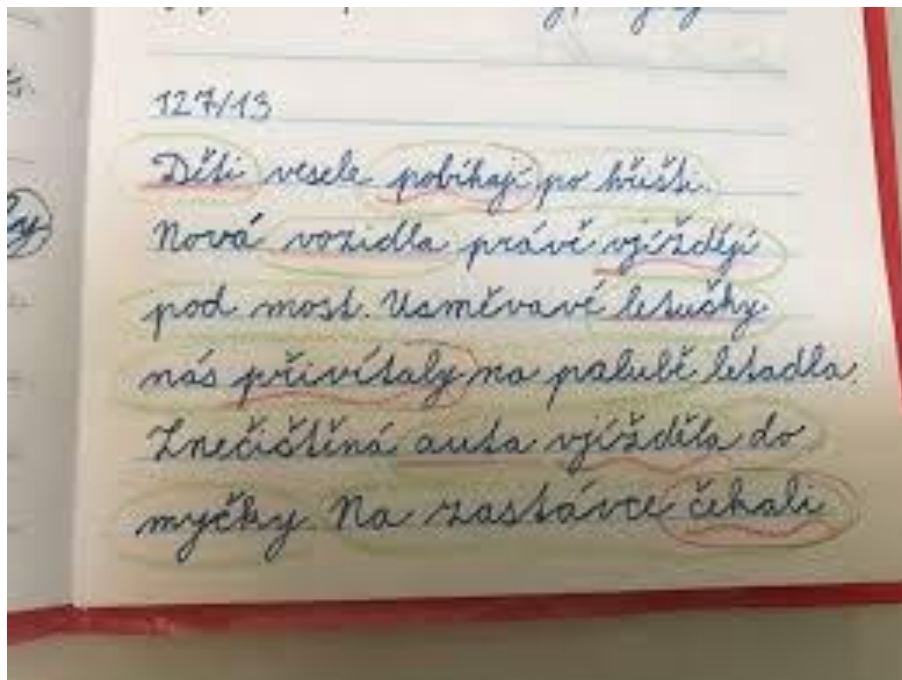 127/13
Děti vesele pobíhají po hřišti.
Nová vozidla právě vjíždějí
pod most. Usměvavé letušky
nás přivítaly na palubě letadla.
Znečištěná auta vjížděla do
myčky. Na zastávce čekali